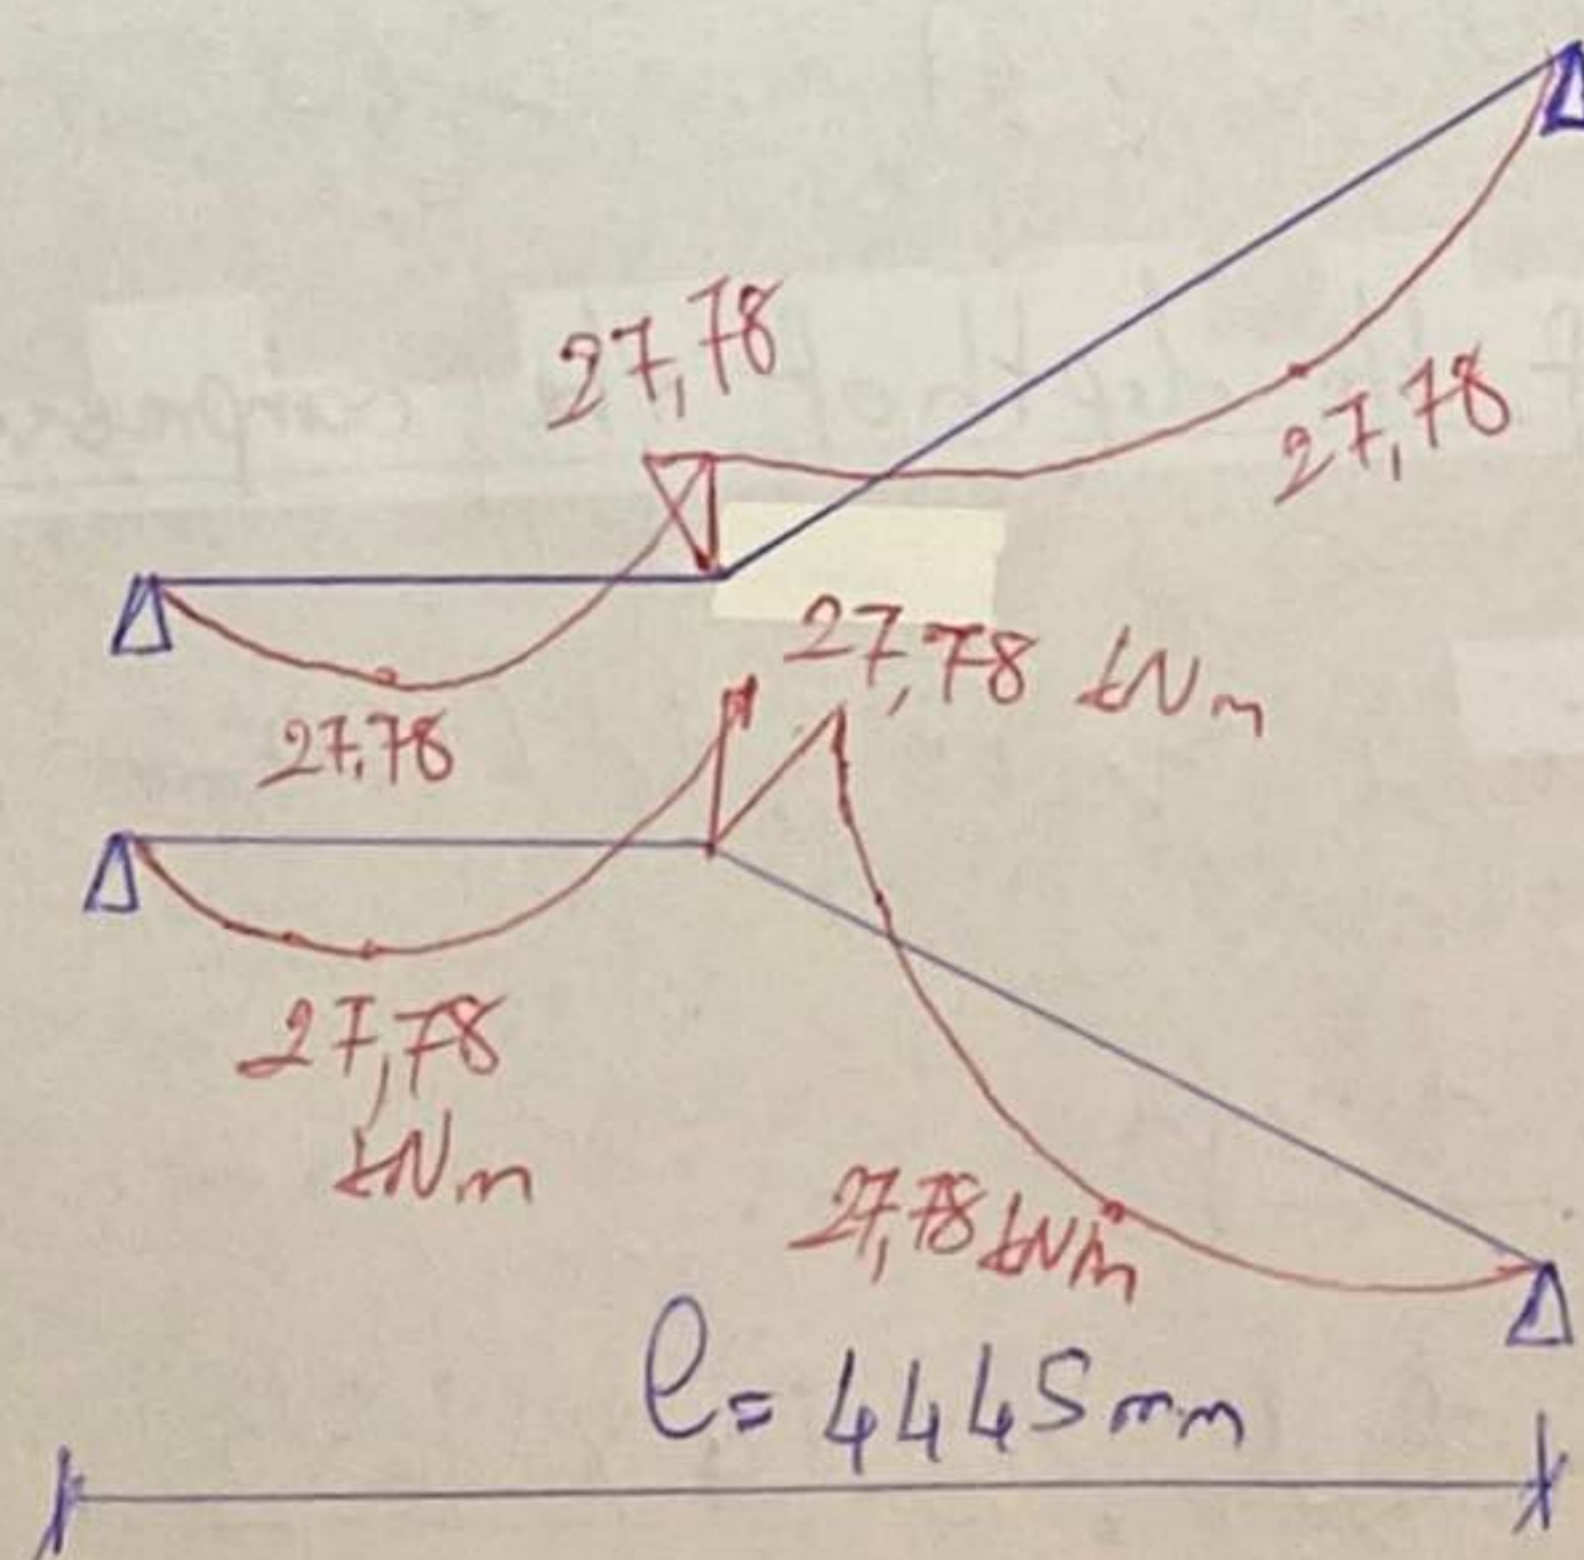 27,78
27,78
27,78
27,78 kNm
27,78
kNm
27,78 kNm
l = 4445mm